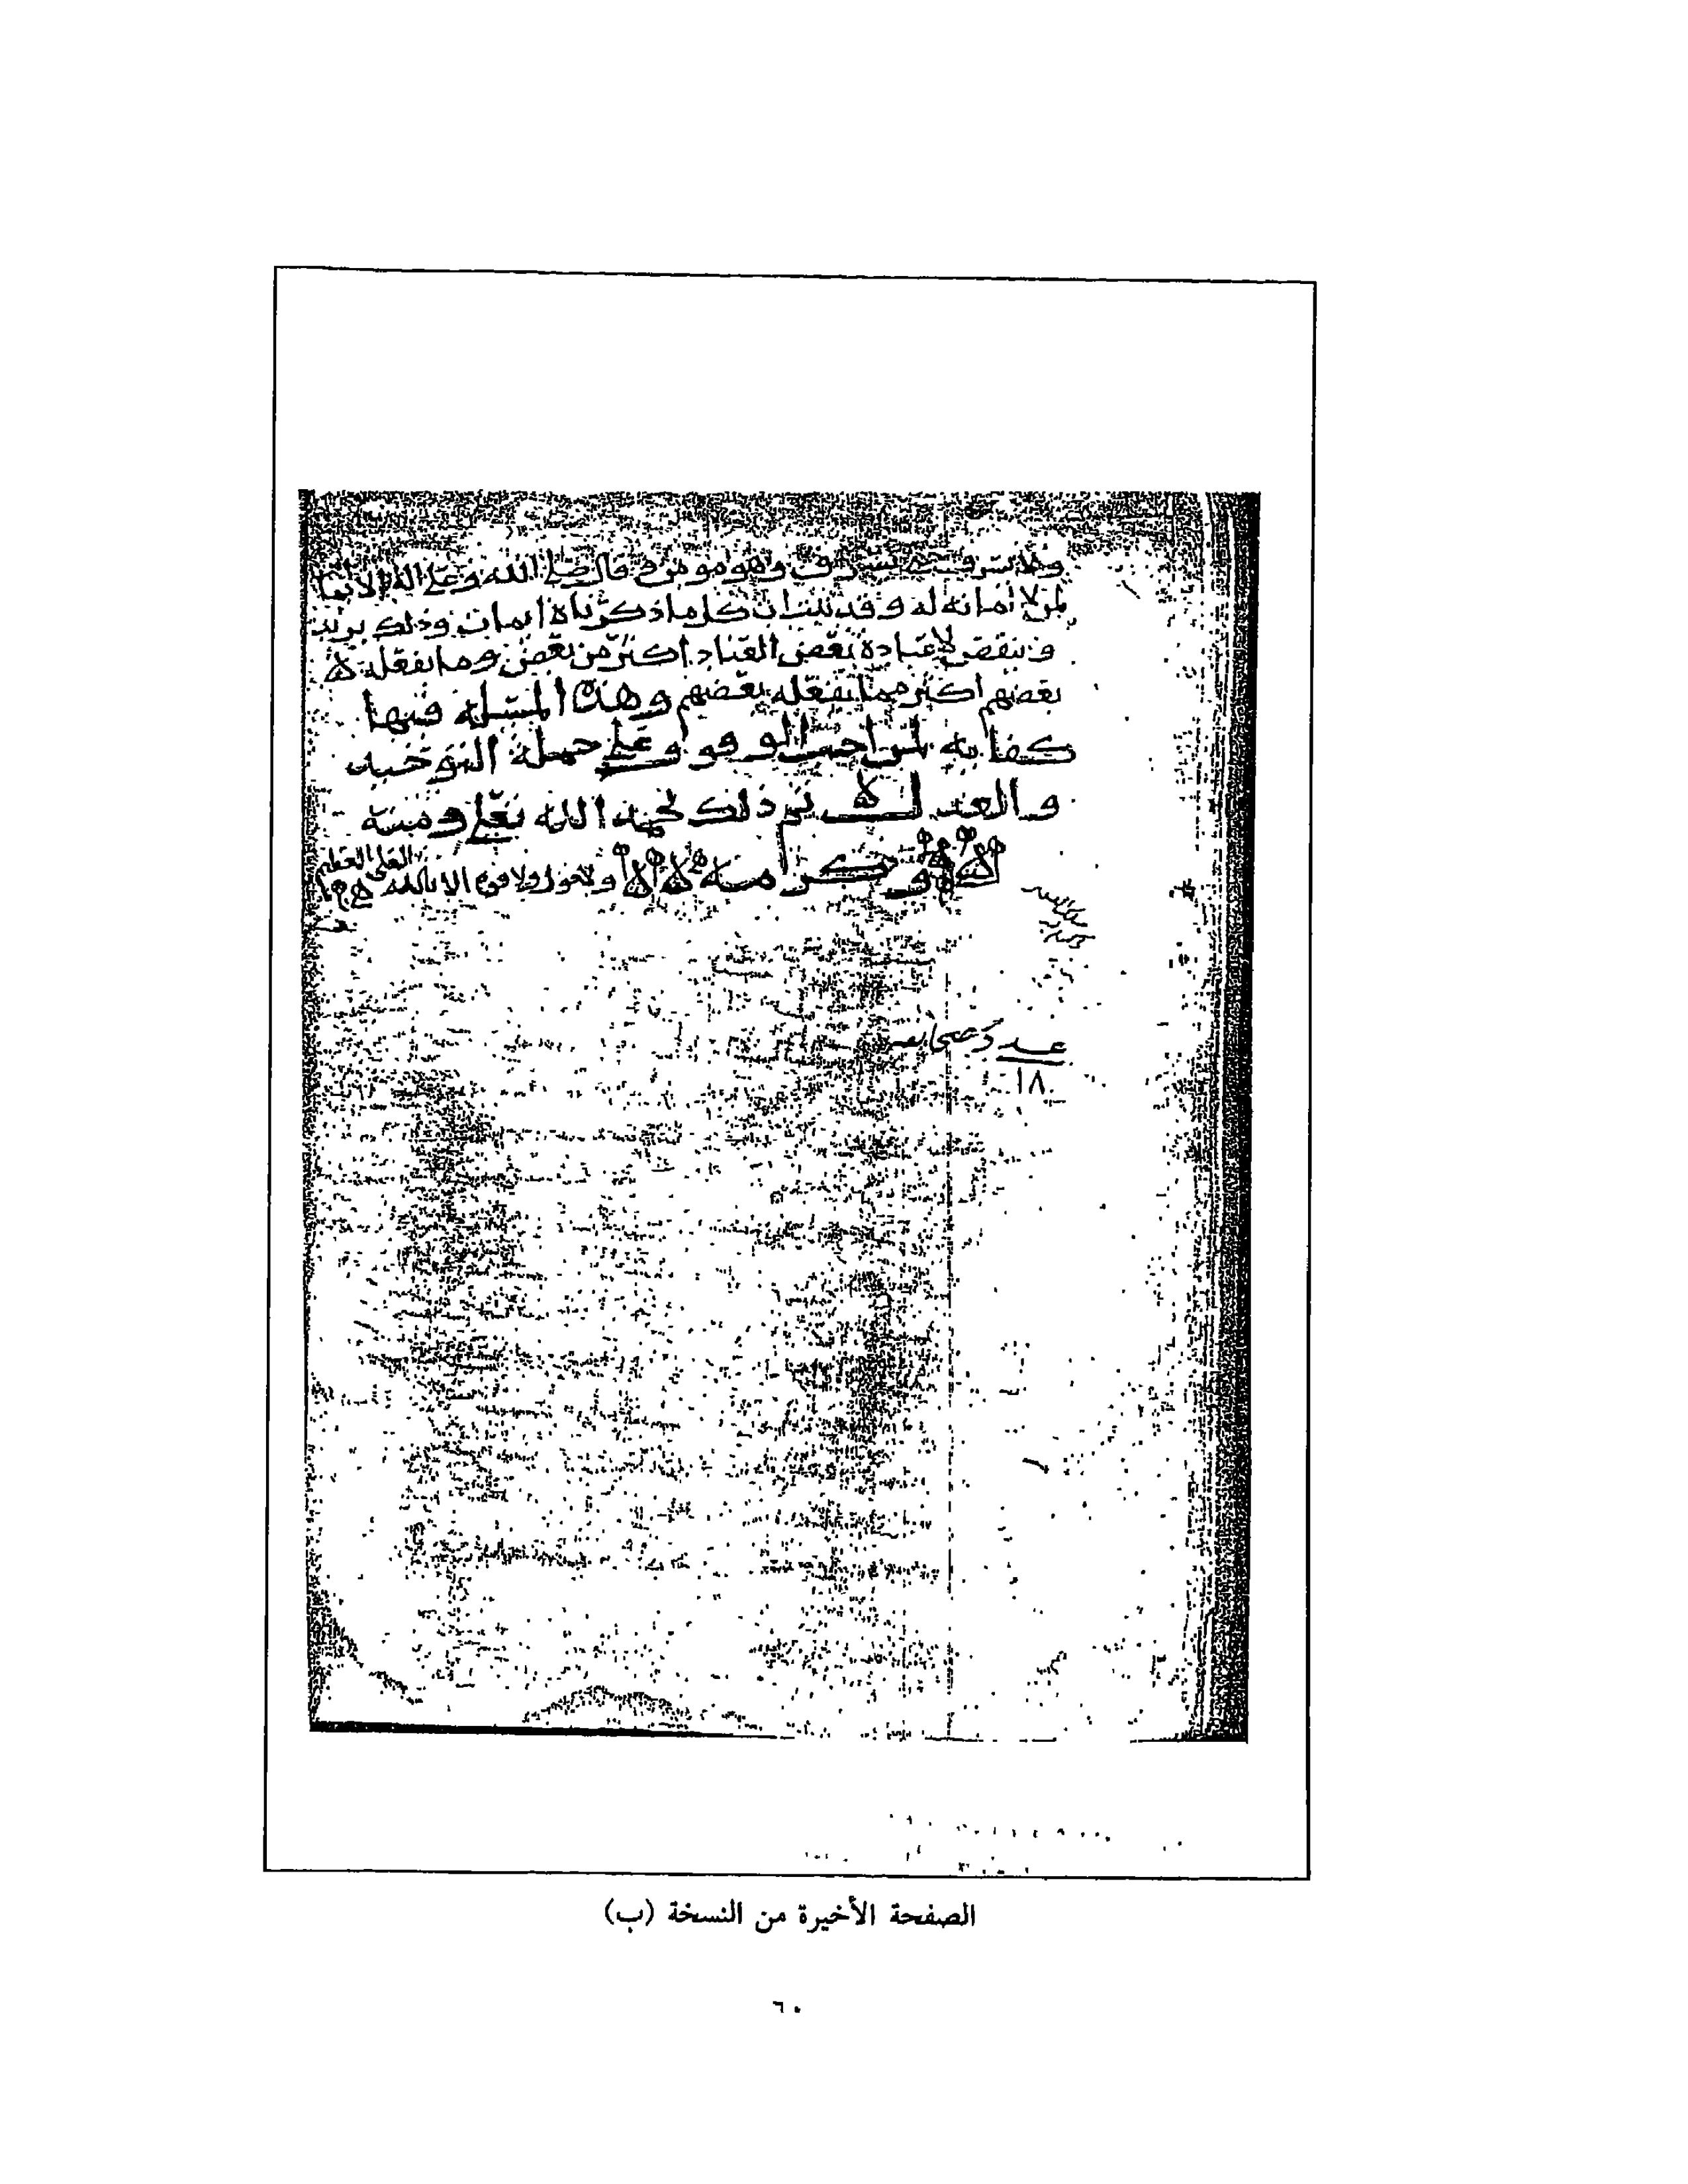 ولا يسرق حين يسرق وهو مومن وقال صلى الله وعلى اله لا ايمان
لمن لا امانه له وقد بينا ان كل ما ذكرناه ايمان وذلك يزيد
وينقص لا عبادة بعض العباد اكثر من بعض وما يفعله
بعضهم اكثر مما يفعله بعضهم وهذه المسلة فيها
كفايه لمن احب الوقوف على جملة التوحيد
والعدل تم ذلك بحمد الله تعلى ومنه
وكرامته ولا حول ولا قوه الا بالله العلي العظيم
١٨
الصفحة الأخيرة من النسخة (ب)
٦٠